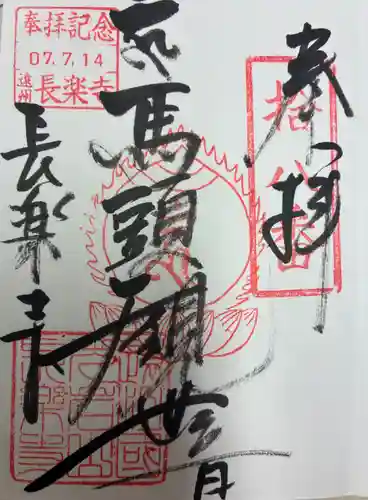 奉拝
拾八番
馬頭観世音
奉拝記念
07.7.14
遠州 長楽寺
長楽寺